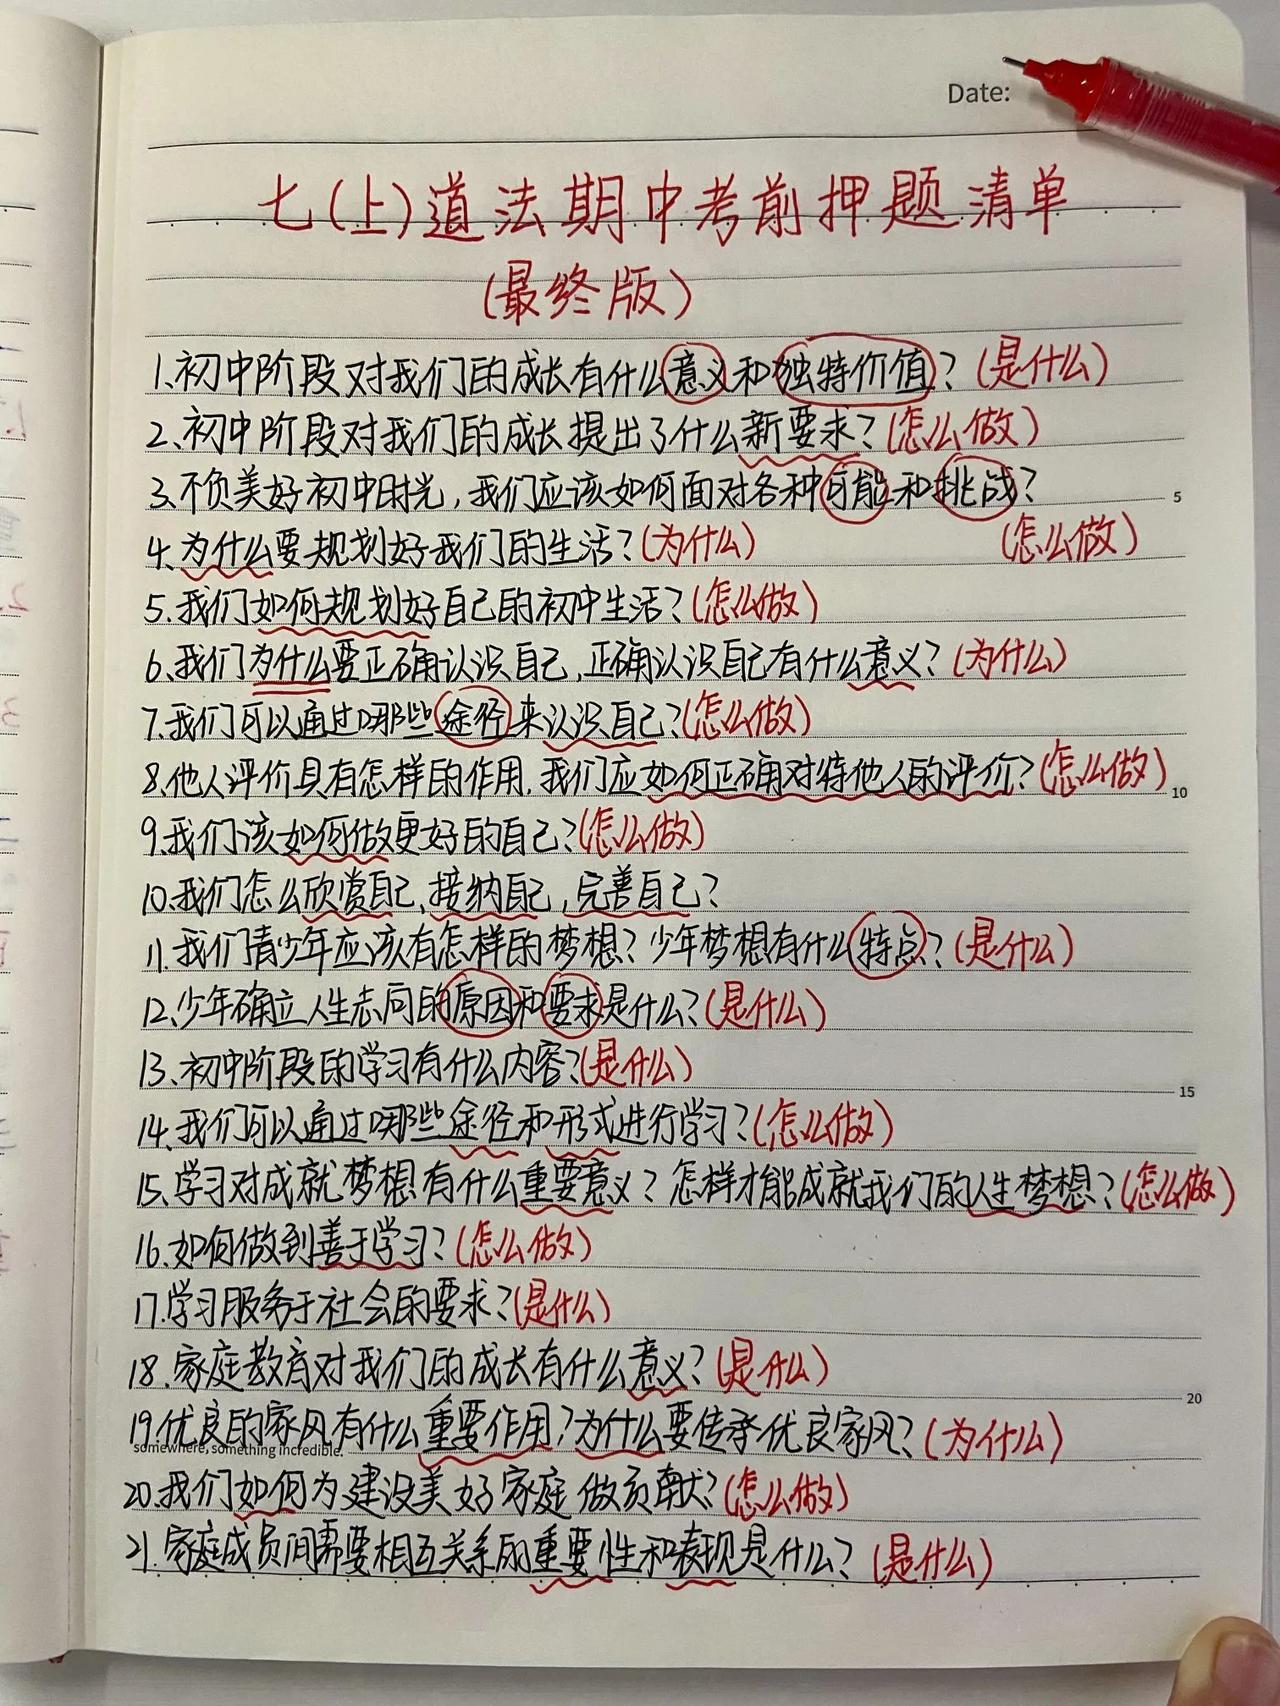 Date:
七(上)道法期中考前押题清单
(最终版)
1.初中阶段对我们的成长有什么意义和独特价值?(是什么)
2、初中阶段对我们的成长提出了什么新要求?(怎么做)
3、不负美好初中时光,我们应该如何面对各种可能和挑战?
(怎么做)
4、为什么要规划好我们的生活?(为什么)
5.我们如何规划好自己的初中生活?(怎么做)
6、我们为什么要正确认识自己,正确认识自己有什么意义?(为什么)
7.我们可以通过哪些途径来认识自己?(怎么做)
8.他人评价具有怎样的作用,我们应如何正确对待他人的评价?(怎么做)
9.我们该如何做更好的自己?(怎么做)
10.我们怎么欣赏自己,接纳自己,完善自己?
11.我们青少年应该有怎样的梦想?少年梦想有什么特点?(是什么)
12、少年确立人生志向的原因和要求是什么?(是什么)
13、初中阶段的学习有什么内容?(是什么)
14、我们可以通过哪些途径和形式进行学习?(怎么做)
15.学习对成就梦想有什么重要意义?怎样才能成就我们的人生梦想?(怎么做)
16.如何做到善于学习?(怎么做)
17.学习服务于社会的要求?(是什么)
18.家庭教育对我们的成长有什么意义?(是什么)
19.优良的家风有什么重要作用?为什么要传承优良家风?(为什么)
somewhere, something incredible.
20.我们如何为建设美好家庭做贡献?(怎么做)
21.家庭成员间需要相互关系的重要性和表现是什么?(是什么)
5
10
15
20